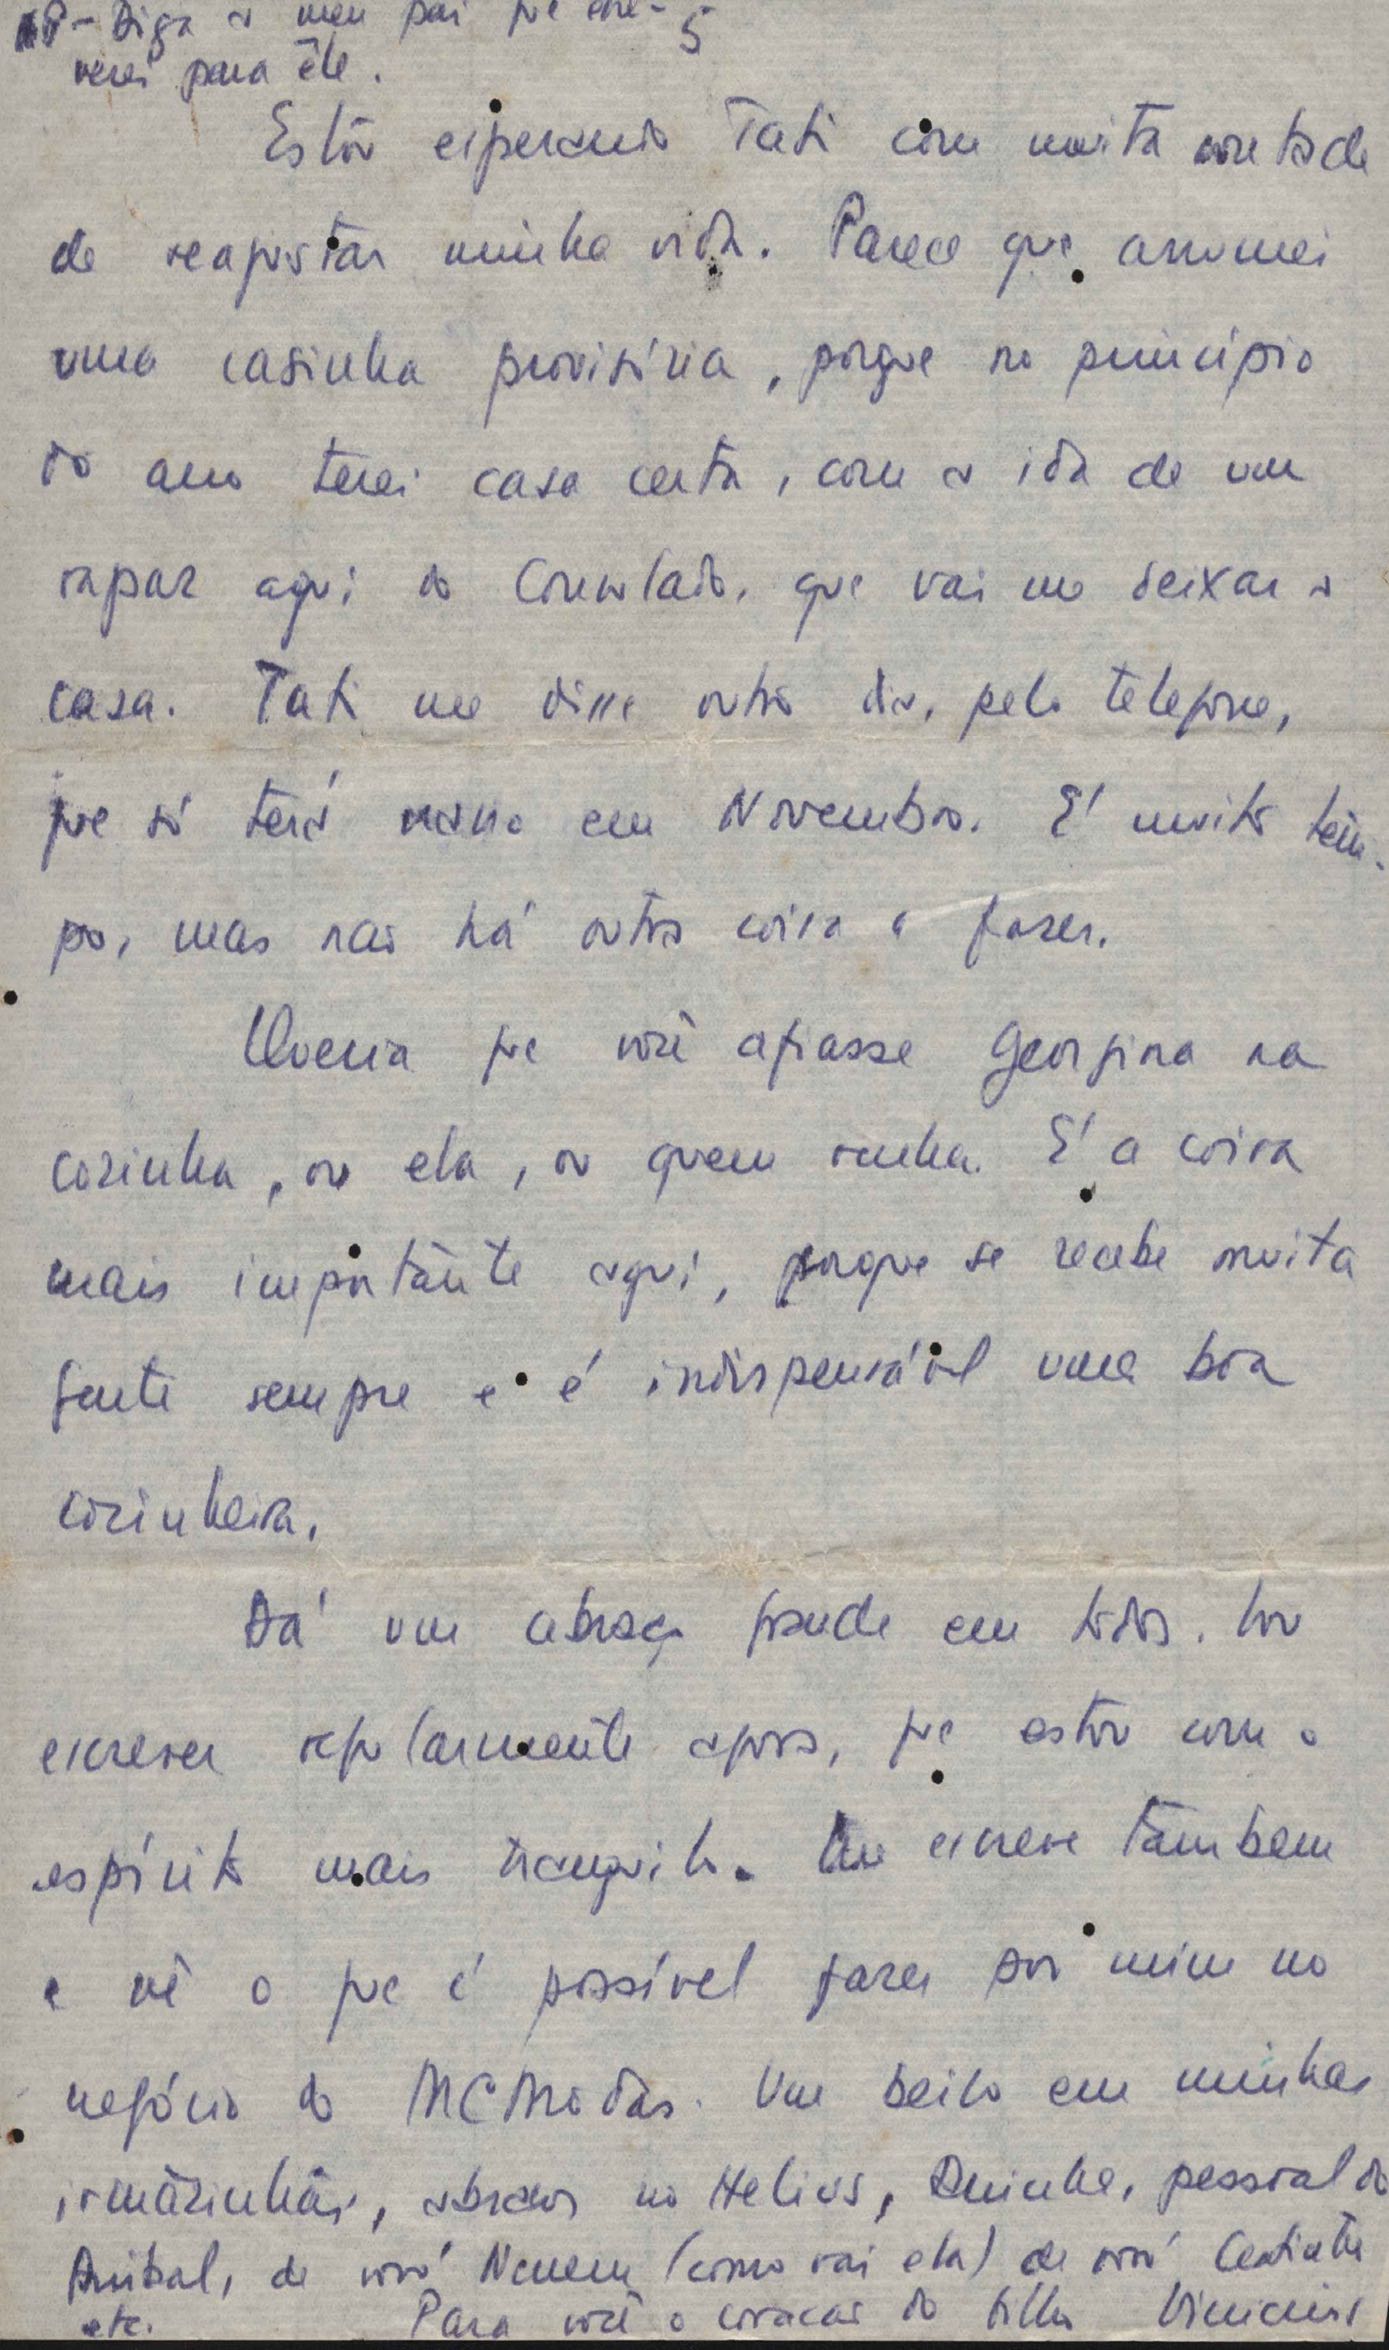 P - Diga a meu pai que escre- 5
verei para êle.
Estou esperando Tati com muita vontade
de reajustar minha vida. Parece que arrumei
uma casinha provisória, porque no princípio
do ano terei casa certa, com a ida de um
rapaz aqui do Consulado, que vai me deixar a
casa. Tati me disse outro dia, pelo telefone,
que só terá em Novembro. É muito tem-
po, mas não há outra coisa a fazer.
Queria que você afiasse Georgina na
cozinha, ou ela, ou quem venha. É a coisa
mais importante aqui, porque se recebe muita
gente sempre e é indispensável uma boa
cozinheira.
Dá um abraço grande em todos. Vou
escrever regularmente agora, que estou com o
espírito mais tranquilo. Me escreve tambem
e vê o que é possível fazer por mim no
negócio do MCModas. Um beijo em minhas
irmãzinhas, abraços no Helius, pessoal do
Anibal, de vovó Nenem (como vai ela) de vovó
etc. Para você o coração do filho Vinicius